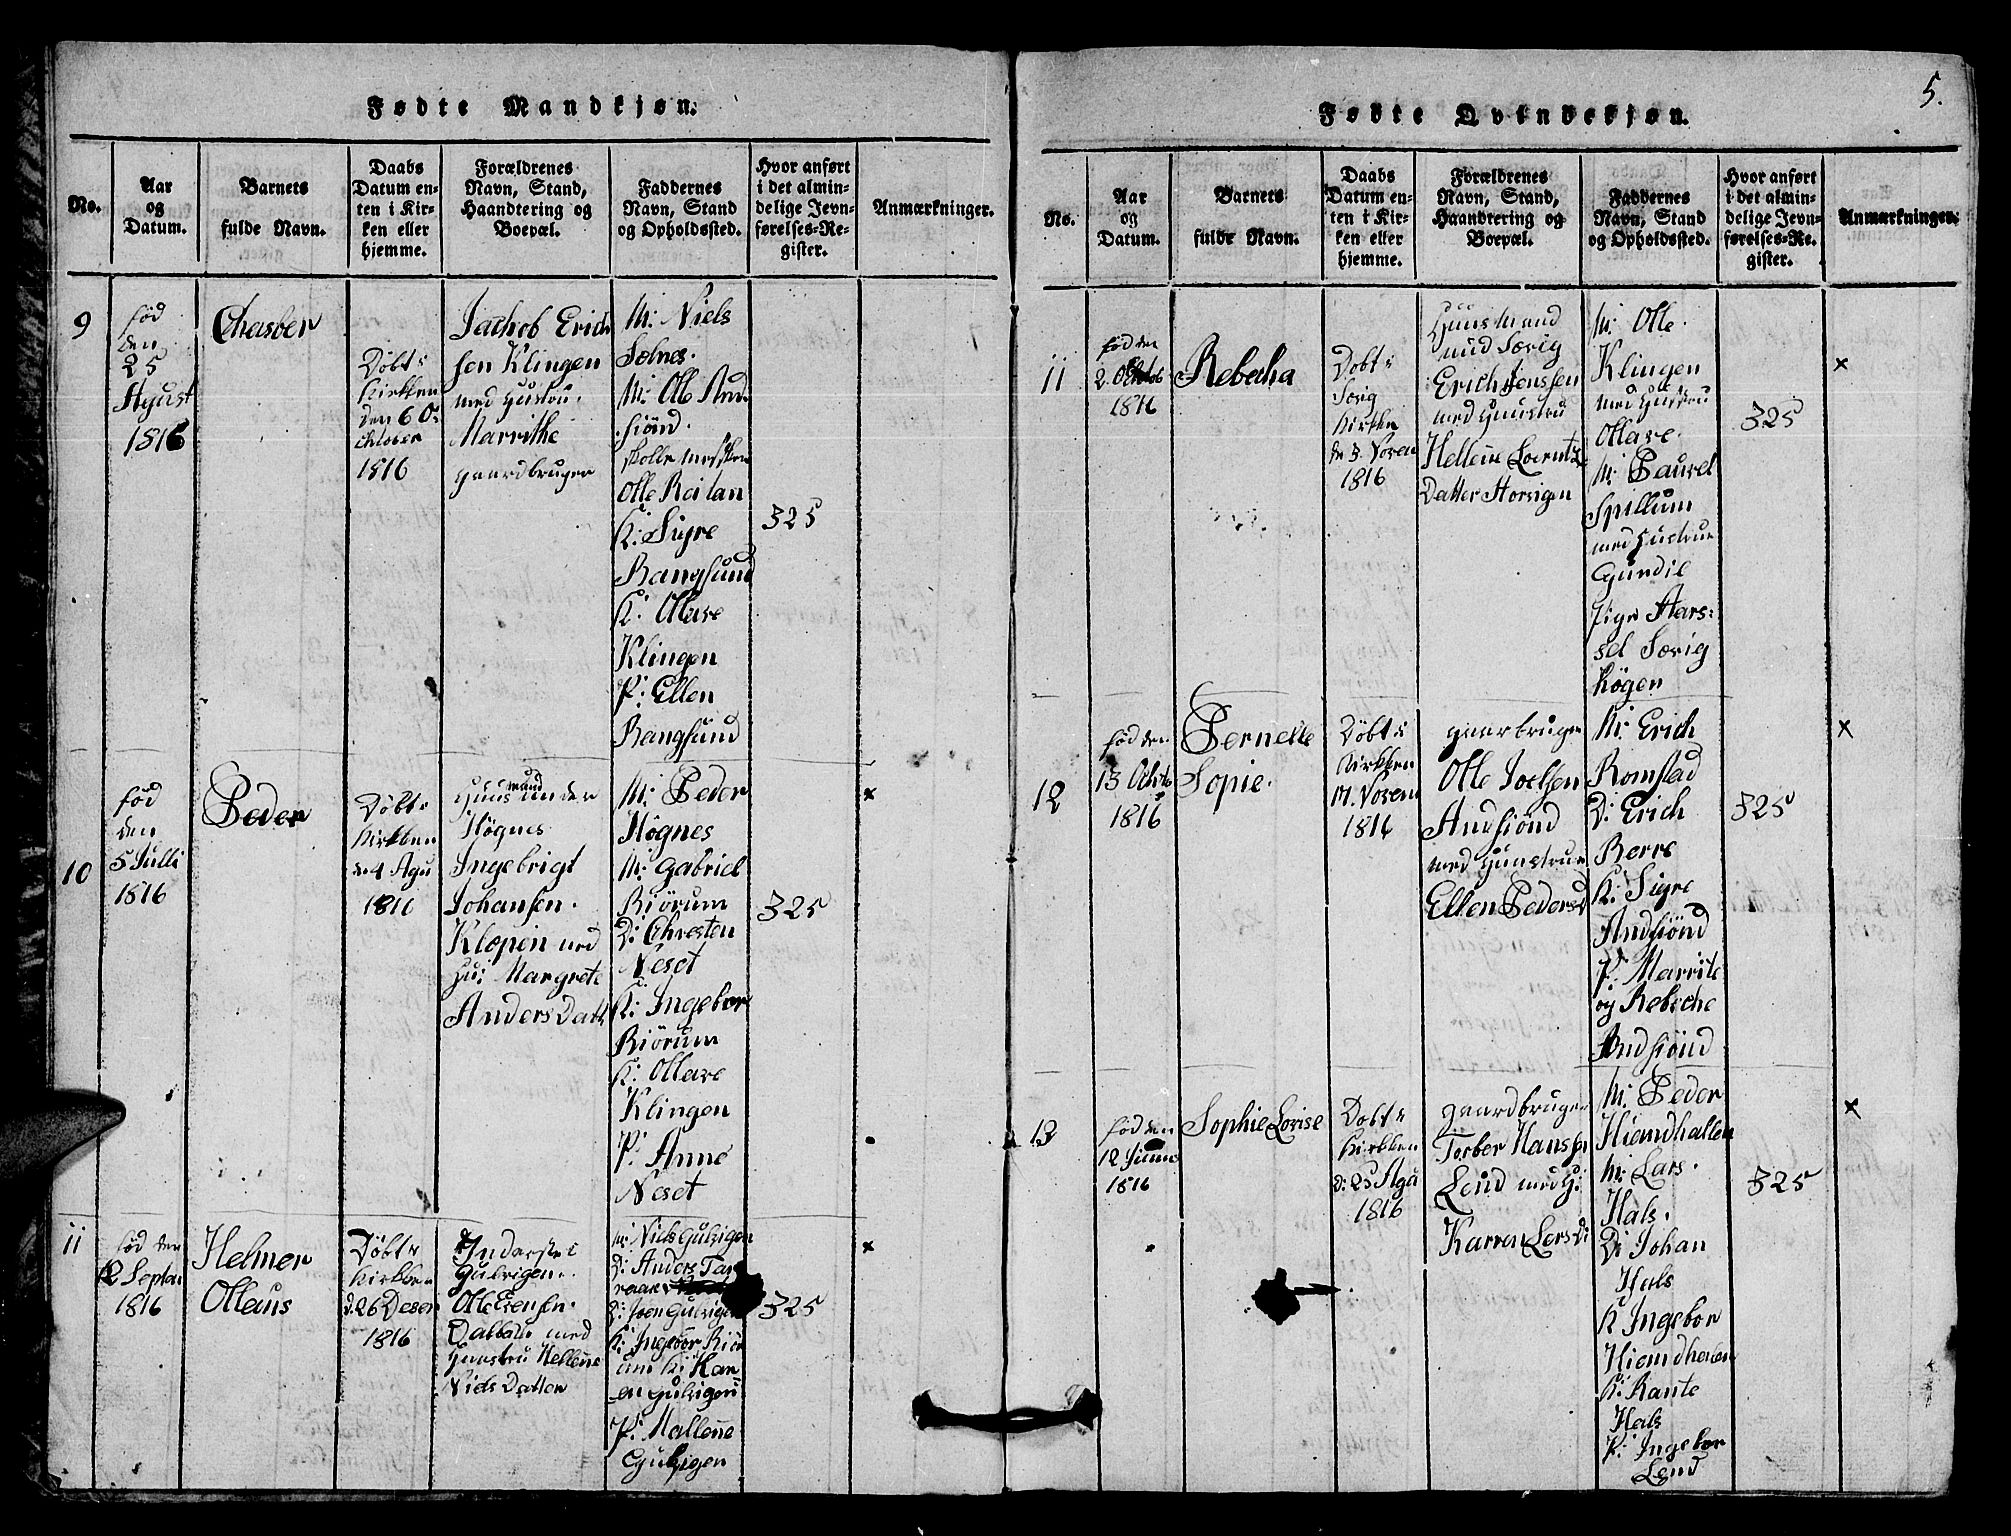 Fødte Mandkjøn.
No.
Aar
og
Datum.
Barnets
fulde Navn.
Daabs
Datum en-
ten i Kir-
ken eller
hjemme.
Forældrenes
Navn, Stand,
Haandtering og
Boepæl.
Faddernes
Navn, Stand
og Opholdssted.
Hvor anført
i det almin-
delige Jevn-
førelses-Re-
gister.
Anmærkninger.
9
fød
den
25
Agust
1816
Chasber
Døbt i
Kirkken
den 6 O-
chtober
1816
Jachob Erich
sen Klingen
med Hustru
Marrithe
gaardbruger
M: Niels
Selnes
M: Olle And-
siønd
Olle Reitan
K: Sigre
Rangsund
K: Ollave
Klingen
P: Ellen
Rangsund
325
10
fød
den
5 Julli
1816
Peder
Døbt i
Kirkken
den 4 Agu
1816
Huusmand under
Høgnes
Ingebrigt
Johansen
Klopen med
Hu: Margrete
Anders Datt
M: Peder
Høgnes
M: Gabriel
Biørum
D: Chresten
Neset
K: Ingebor
Biørum
K: Ollave
Klingen
P: Anne
Neset
325
×
11
fød den
12 Septem
1816
Helmer
Ollaus
Døbt i
Kirkken
d. 26 Desem
1816
Inderste i
Gulvigen
Olle Evensen
med
Huustru Hellene
Niels Datter
M: Niels Gulvigen
D: Anders Tar
D: Joen Gulvigen
K: Ingebor Biør
um K: Kar-
en Gulvigen
P: Mallene
Gulvigen
325
×
5.
Fødte Qvindekjøn.
No.
Aar
og
Datum.
Barnets
fulde Navn.
Daabs
Datum en-
ten i Kir-
ken eller
hjemme.
Forældrenes
Navn, Stand,
Haandtering og
Boepæl.
Faddernes
Navn, Stand
og Opholdssted.
Hvor anført
i det almin-
delige Jevn-
førelses-Re-
gister.
Anmærkninger.
11
fød den
2. Ochtob
1816
Rebecha
Døbt i
Særvig
Kirkke
den 3. Novem
1816
Huusmand
und Særvig
Erich Jenssen
med Huustru
Hellene Lorentz
Datter Storvigen
M: Olle
Klingen
med Hustru
Ollave
M: Pauvel
Spillum
med Hustrue
Gundil
Pige Aars-
sel Særvig
høgen
325
×
12
fød den
13 Ochtob
1816
Pernelle
Sopie
Døbt i
Kirkken
17. Novem
1816
gaarbruger
Olle Joelsen
Andsiønd
med Huustrue
Ellen Peders D
M: Erich
Romstad
D: Erich
Berre
K: Sigre
Andsiønd
P: Marrite
og Rebeche
Andsiønd
325
×
13
fød den
12 Junni
1816
Sophie Lovise
Døbt i
Kirkken
D: 25 Agu
1816
gaardbruger
Torber Hanssen
Lend med H:
Karren Lers D:
M: Peder
Hiemdhallen
M: Lars
Hals
D: Johan
Hals
K Ingebor
Hiemdhallen
K: Rante
Hals
P: Ingebor
Lend
325
×